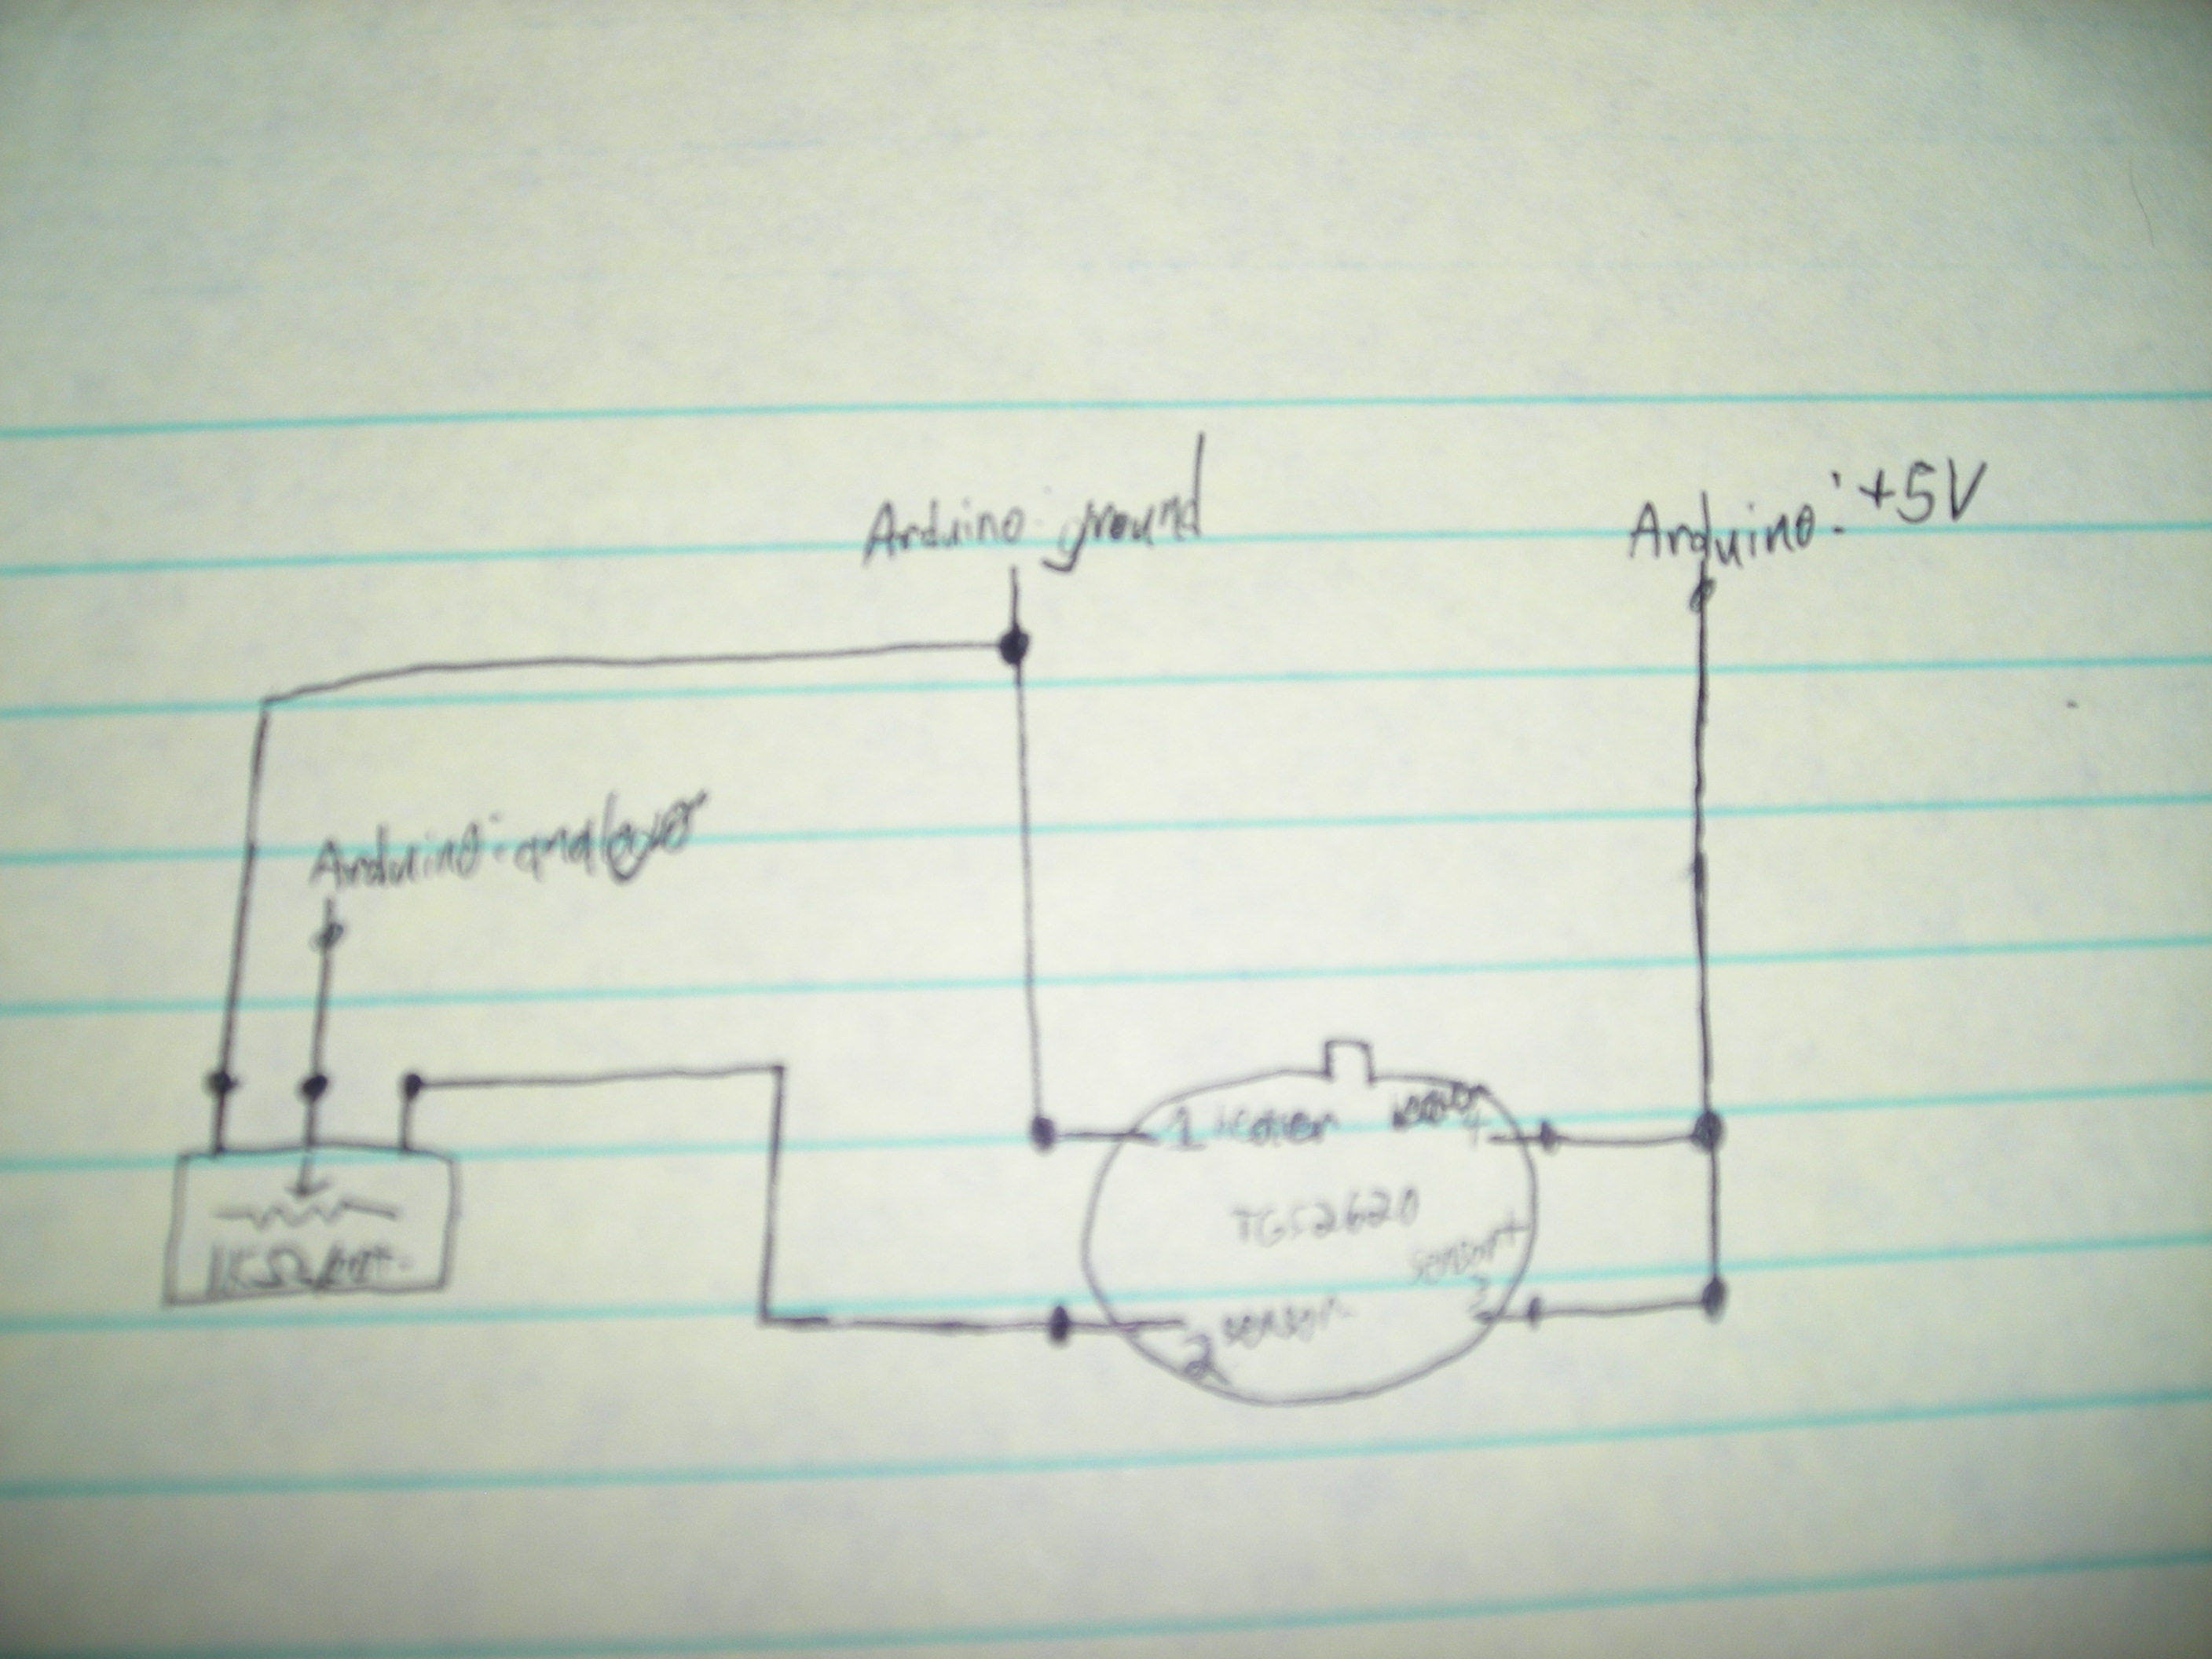 Arduino ground
Arduino: +5V
Arduino: analog 0
1 heater
heater 4
TGS2620
sensor+
3
sensor-
2
1KΩ pot.